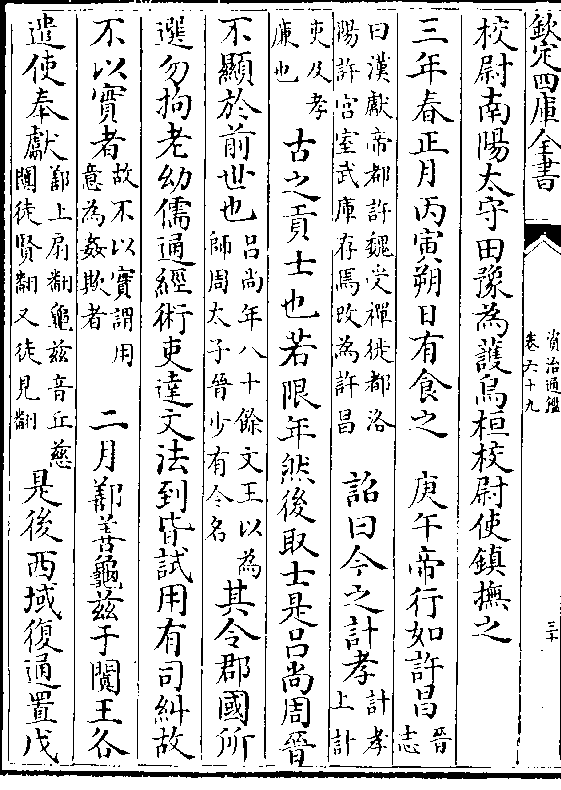 欽定四庫全書
資治通鑑
卷六十九
三十
校尉南陽太守田豫為護烏桓校尉使鎮撫之
三年春正月丙寅朔日有食之 庚午帝行如許昌晉志
曰漢獻帝都許魏受禪徙都洛
陽許宮室武庫存焉改為許昌 詔曰今之計孝計孝上計
吏及孝
廉也 古之貢士也若限年然後取士是呂尚周晉
不顯於前世也呂尚年八十餘文王以為
師周太子晉少有令名 其令郡國所
選勿拘老幼儒通經術吏達文法到皆試用有司糾故
不以實者故不以實謂用
意為姦欺者 二月鄯善龜兹于闐王各
遣使奉獻鄯上扇翻龜兹音丘慈
闐徒賢翻又徒見翻 是後西域復通置戊